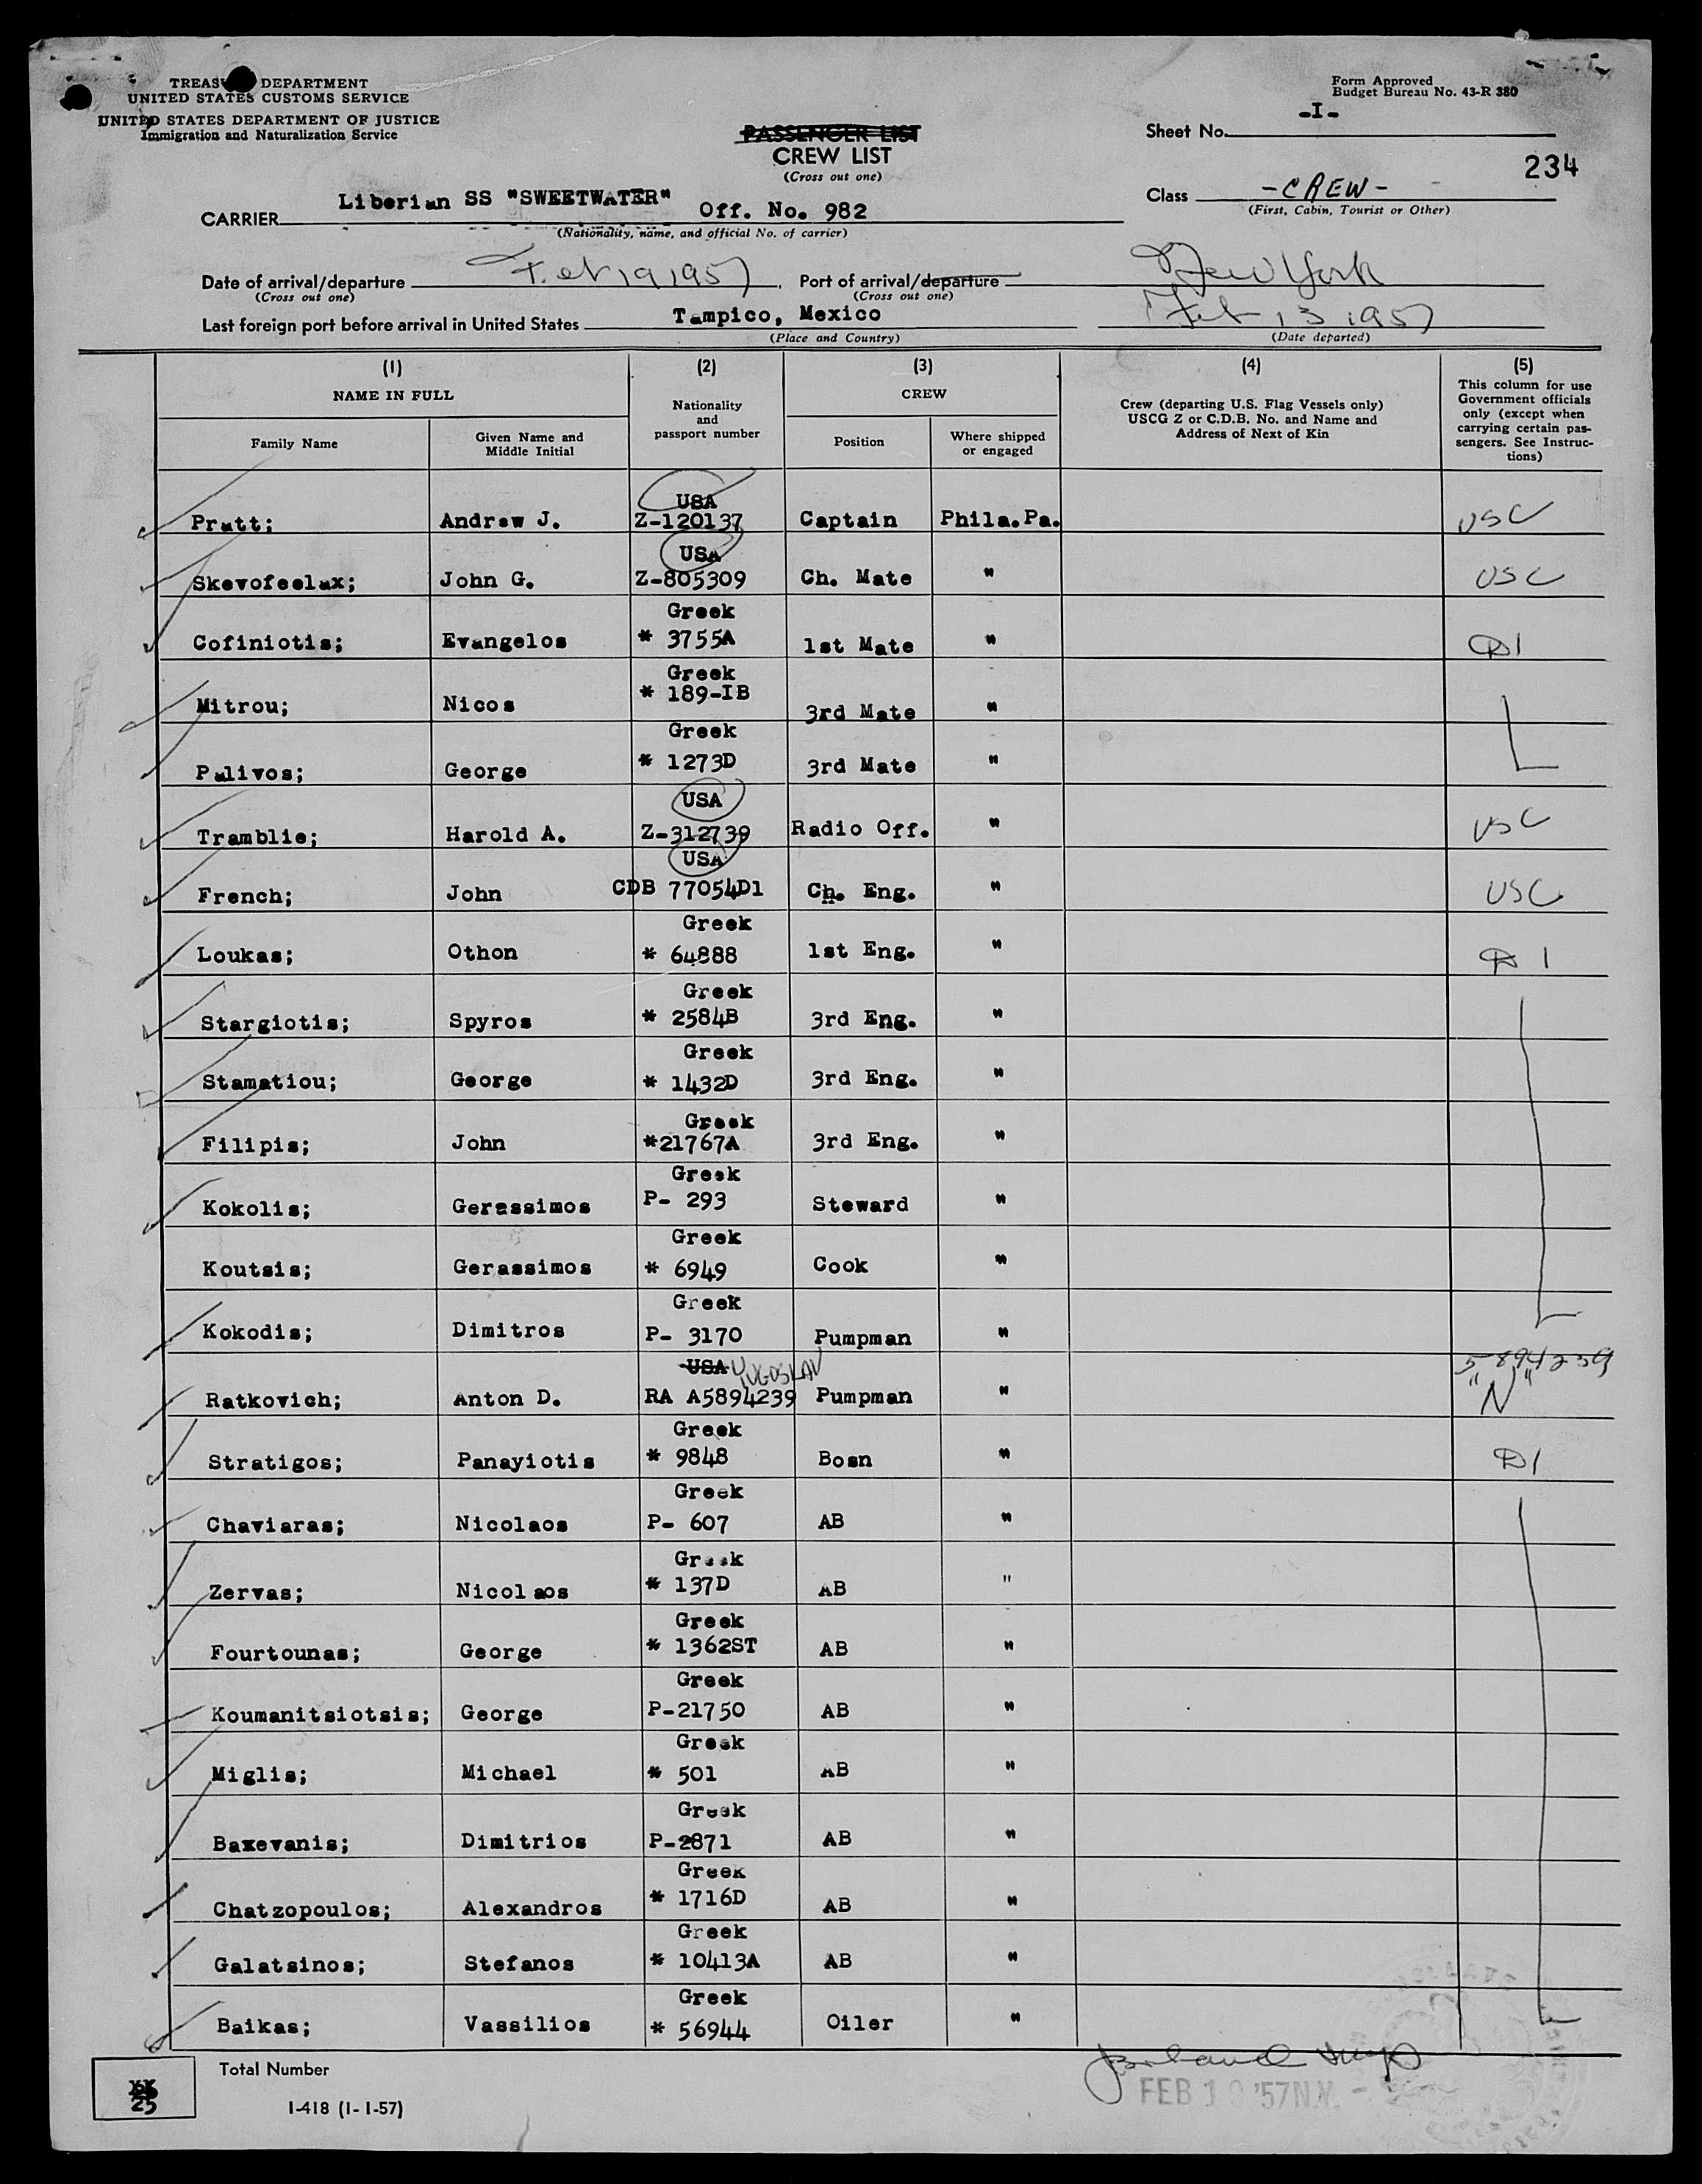 TREAS DEPARTMENT
UNITED STATES CUSTOMS SERVICE
UNITED STATES DEPARTMENT OF JUSTICE
Immigration and Naturalization Service
Form Approved
Budget Bureau No. 43-R 380
PASSENGER LIST
CREW LIST
(Cross out one)
Sheet No. -I-
234
Class -CREW-
(First, Cabin, Tourist or Other)
CARRIER Liberian SS "SWEETWATER" Off. No. 982
(Nationality, name, and official No. of carrier)
Date of arrival/departure Feb 19 1957 Port of arrival/departure New York
(Cross out one) (Cross out one)
Last foreign port before arrival in United States Tampico, Mexico Feb 13 1957
(Place and Country) (Date departed)
(1) (2) (3) (4) (5)
NAME IN FULL
Family Name
Given Name and
Middle Initial
Nationality
and
passport number
CREW
Position
Where shipped
or engaged
Crew (departing U.S. Flag Vessels only)
USCG Z or C.D.B. No. and Name and
Address of Next of Kin
This column for use
Government officials
only (except when
carrying certain pas-
sengers. See Instruc-
tions)
USA
Pratt; Andrew J. Z-120137 Captain Phila.Pa. USC
USA
Skevofeelax; John G. Z-805309 Ch. Mate " USC
Greek
Cofiniotis; Evangelos * 3755A 1st Mate " D1
Greek
Mitrou; Nicos * 189-IB 3rd Mate "
Greek
Palivos; George * 1273D 3rd Mate "
USA
Tramblie; Harold A. Z-312739 Radio Off. " USC
USA
French; John CDB 77054D1 Ch. Eng. " USC
Greek
Loukas; Othon * 64888 1st Eng. " D1
Greek
Stargiotis; Spyros * 2584B 3rd Eng. "
Greek
Stamatiou; George * 1432D 3rd Eng. "
Greek
Filipis; John *21767A 3rd Eng. "
Greek
Kokolis; Gerassimos P- 293 Steward "
Greek
Koutsis; Gerassimos * 6949 Cook "
Greek
Kokodis; Dimitros P- 3170 Pumpman "
USA YUGOSLAV 5894239
Ratkovich; Anton D. RA A5894239 Pumpman " "N"
Greek
Stratigos; Panayiotis * 9848 Bosn " D1
Greek
Chaviaras; Nicolaos P- 607 AB "
Greek
Zervas; Nicolaos * 137D AB "
Greek
Fourtounas; George * 1362ST AB "
Greek
Koumanitsiotsis; George P-21750 AB "
Greek
Miglis; Michael * 501 AB "
Greek
Baxevanis; Dimitrios P-2871 AB "
Greek
Chatzopoulos; Alexandros * 1716D AB "
Greek
Galatsinos; Stefanos * 10413A AB "
Greek
Baikas; Vassilios * 56944 Oiler "
Total Number
25
I-418 (1-1-57)
FEB 19 '57 N.Y.